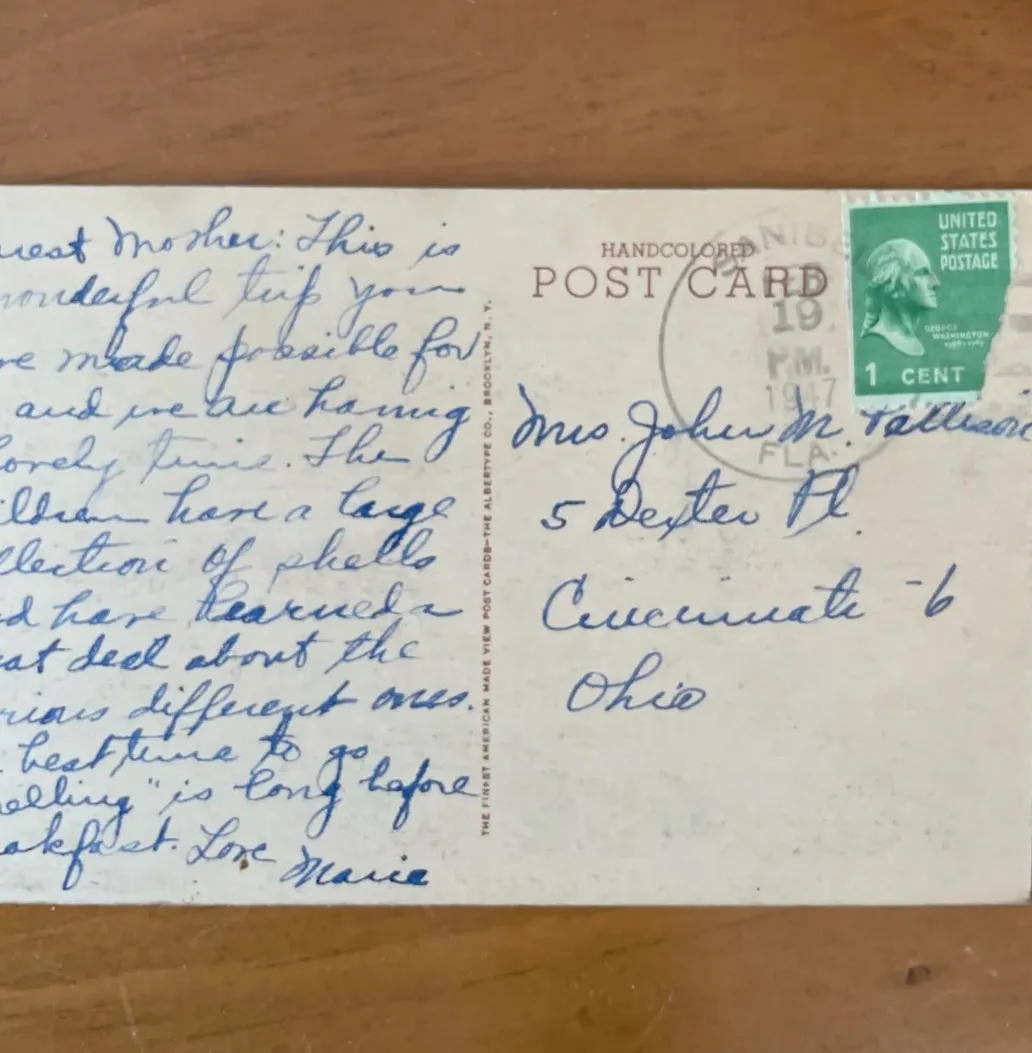 uest Mother: This is
wonderful trip you
ve made possible for
and we are having
lovely time. The
ildren have a large
llection of shells
nd have learned a
eat deal about the
rious different ones.
best time to go
elling" is long before
akfast. Love
Marie
THE FINEST AMERICAN MADE VIEW POST CARDS—THE ALBERTYPE CO., BROOKLYN, N. Y.
HANDCOLORED
POST CARD
SANIBE
19
PM.
1947
FLA.
UNITED
STATES
POSTAGE
GEORGE
WASHINGTON
1 CENT
Mrs. John M. Pattison
5 Dexter Pl.
Cincinnati -6
Ohio